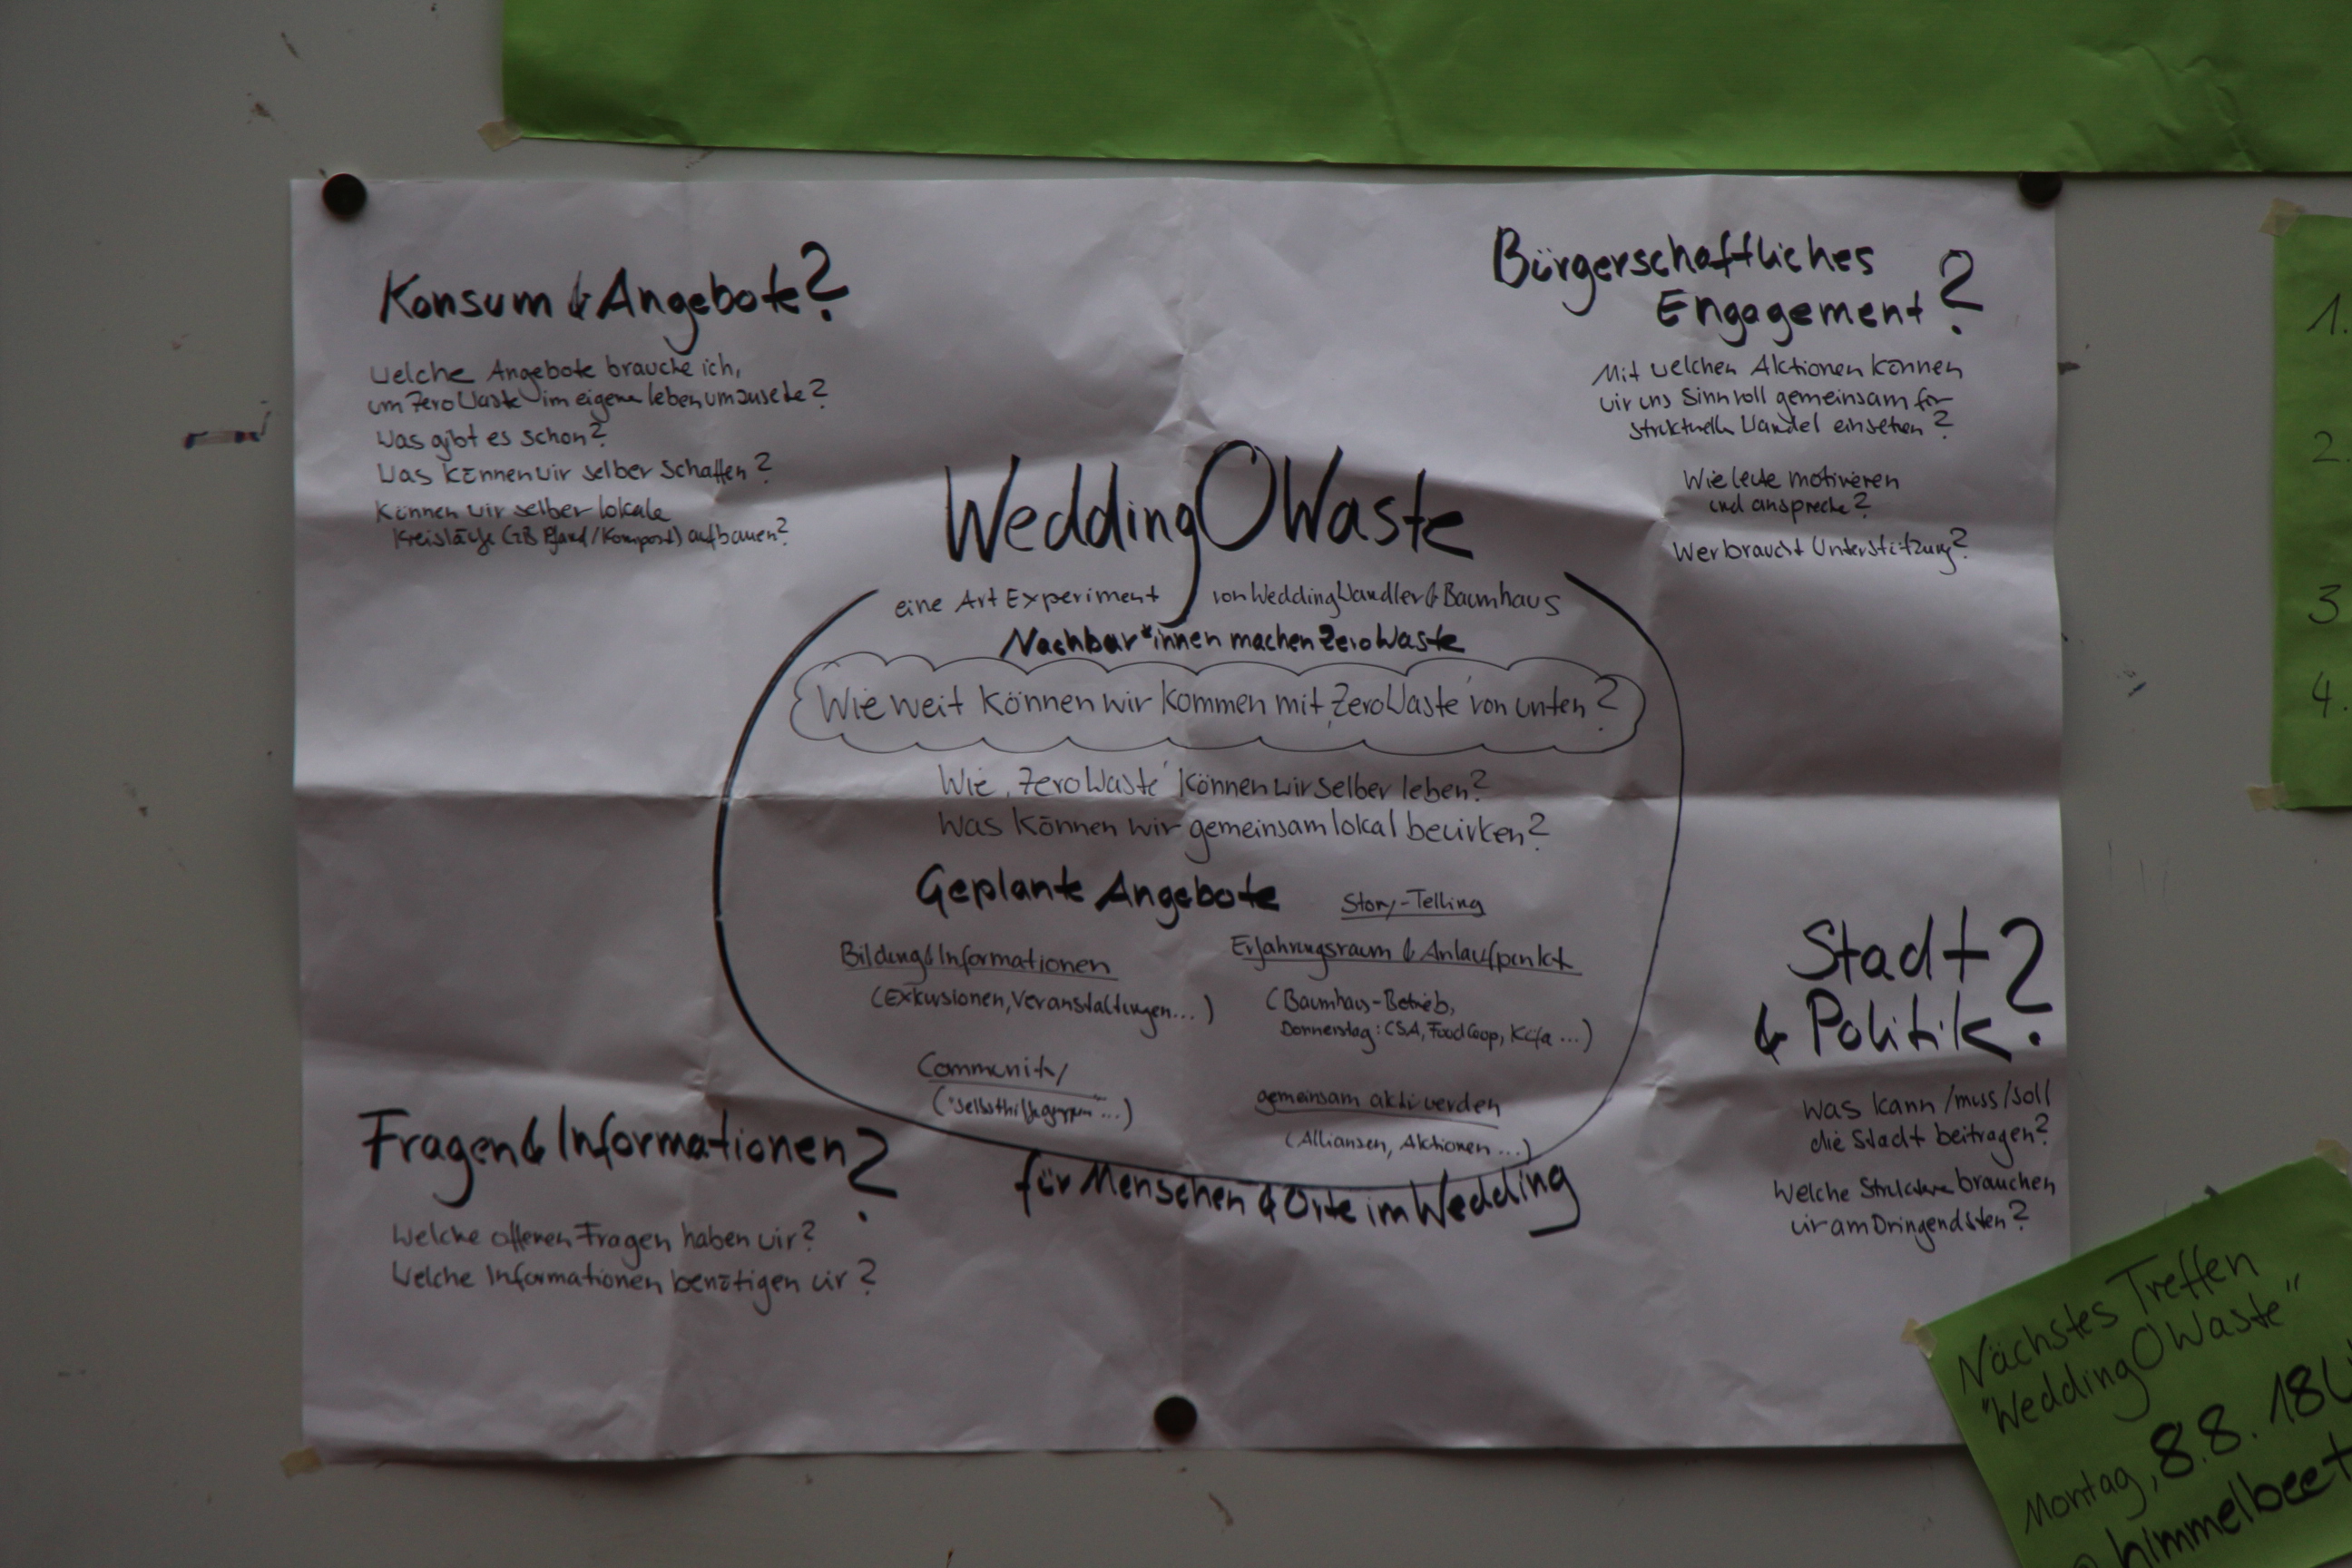 Konsum & Angebote?
Welche Angebote brauche ich,
um Zero Waste im eigenen leben umzusetze?
Was gibt es schon?
Was können wir selber schaffen?
Können wir selber lokale
Kreisläufe (zB Pfand/Kompost) aufbauen?
Bürgerschaftliches
Engagement?
Mit welchen Aktionen können
wir uns Sinnvoll gemeinsam für
strukturellen Wandel einsetzen?
Wie leute motivieren
und anspreche?
Wer braucht Unterstützung?
Wedding0Waste
eine Art Experiment von WeddingWandler & Baumhaus
Nachbar*innen machen ZeroWaste
Wie weit können wir kommen mit ,ZeroWaste' von unten?
Wie ,ZeroWaste' können wir selber leben?
Was können wir gemeinsam lokal bewirken?
Geplante Angebote
Story-Telling
Bildung & Informationen
(Exkursionen, Veranstaltungen...)
Erfahrungsraum & Anlaufpunkt
(Baumhaus-Betrieb,
Donnerstag: CSA, FoodCoop, Küfa ...)
Community
("Selbsthilfegruppen"...)
gemeinsam aktiv werden
(Alliansen, Aktionen...)
für Menschen & Orte im Wedding
Fragen & Informationen?
Welche offenen Fragen haben wir?
Welche Informationen benötigen wir?
Stadt
& Politik?
Was kann/muss/soll
die Stadt beitragen?
Welche Strukturen brauchen
wir am Dringendsten?
1.
2.
3
4.
Nächstes Treffen
"Wedding0Waste"
Montag, 8.8. 18
@ himmelbeet